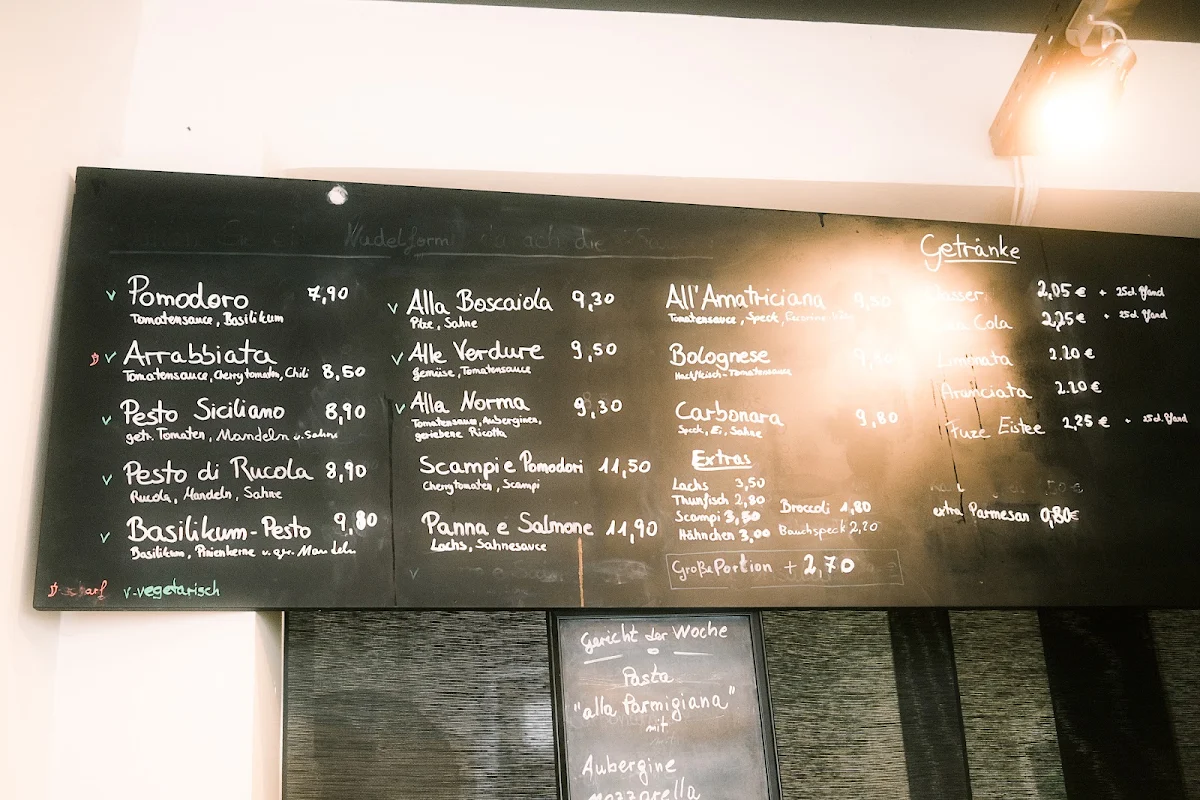 Nudelform
Pomodoro 7,90
Tomatensauce, Basilikum
Arrabbiata
Tomatensauce, Cherrytomaten, Chili 8,50
Pesto Siciliano 8,90
getr. Tomaten, Mandeln u. Sahne
Pesto di Rucola 8,90
Rucola, Mandeln, Sahne
Basilikum-Pesto 9,80
Basilikum, Pinienkerne u. ger. Mandeln
scharf v-vegetarisch
Alla Boscaiola 9,30
Pilze, Sahne
Alle Verdure 9,50
Gemüse, Tomatensauce
Alla Norma 9,30
Tomatensauce, Auberginen,
geriebene Ricotta
Scampi e Pomodori 11,50
Cherrytomaten, Scampi
Panna e Salmone 11,90
Lachs, Sahnesauce
All'Amatriciana 9,50
Tomatensauce, Speck,
Bolognese
Hackfleisch-Tomatensauce
Carbonara 9,80
Speck, Ei, Sahne
Extras
Lachs 3,50
Thunfisch 2,80
Scampi 3,50
Hähnchen 3,00
Broccoli 1,80
Bauchspeck 2,20
Große Portion + 2,70
Getränke
Wasser 2,05 € + 25ct. Pfand
Cola 2,25 € + 25ct. Pfand
Limonata 2.20 €
Aranciata 2.20 €
Fuze Eistee 2,25 € + 25ct. Pfand
extra Parmesan 0,80€
Gericht der Woche
Pasta
"alla Parmigiana"
mit
Aubergine
mozzarella